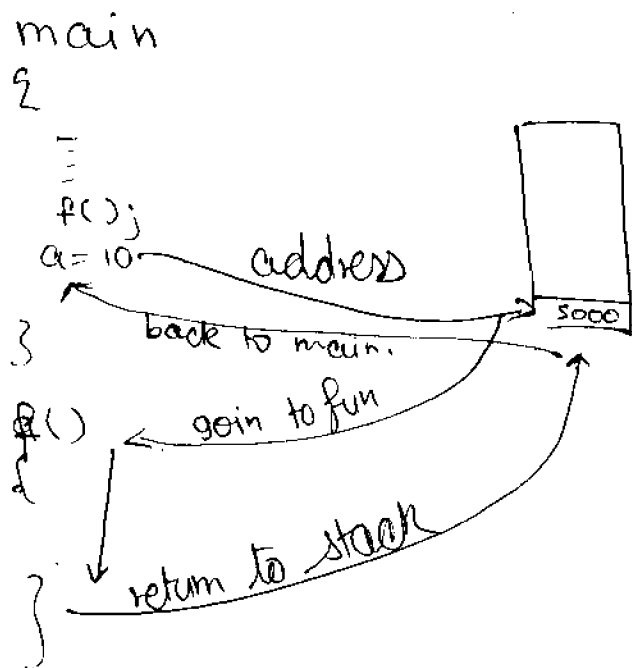 main
{
f();
a = 10
address
5000
back to main.
}
f()
goin to fun
{
return to stack
}